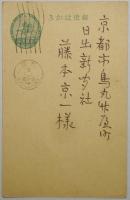 郵便はかき
京都市烏丸竹屋町
日出新聞社
藤本京一様